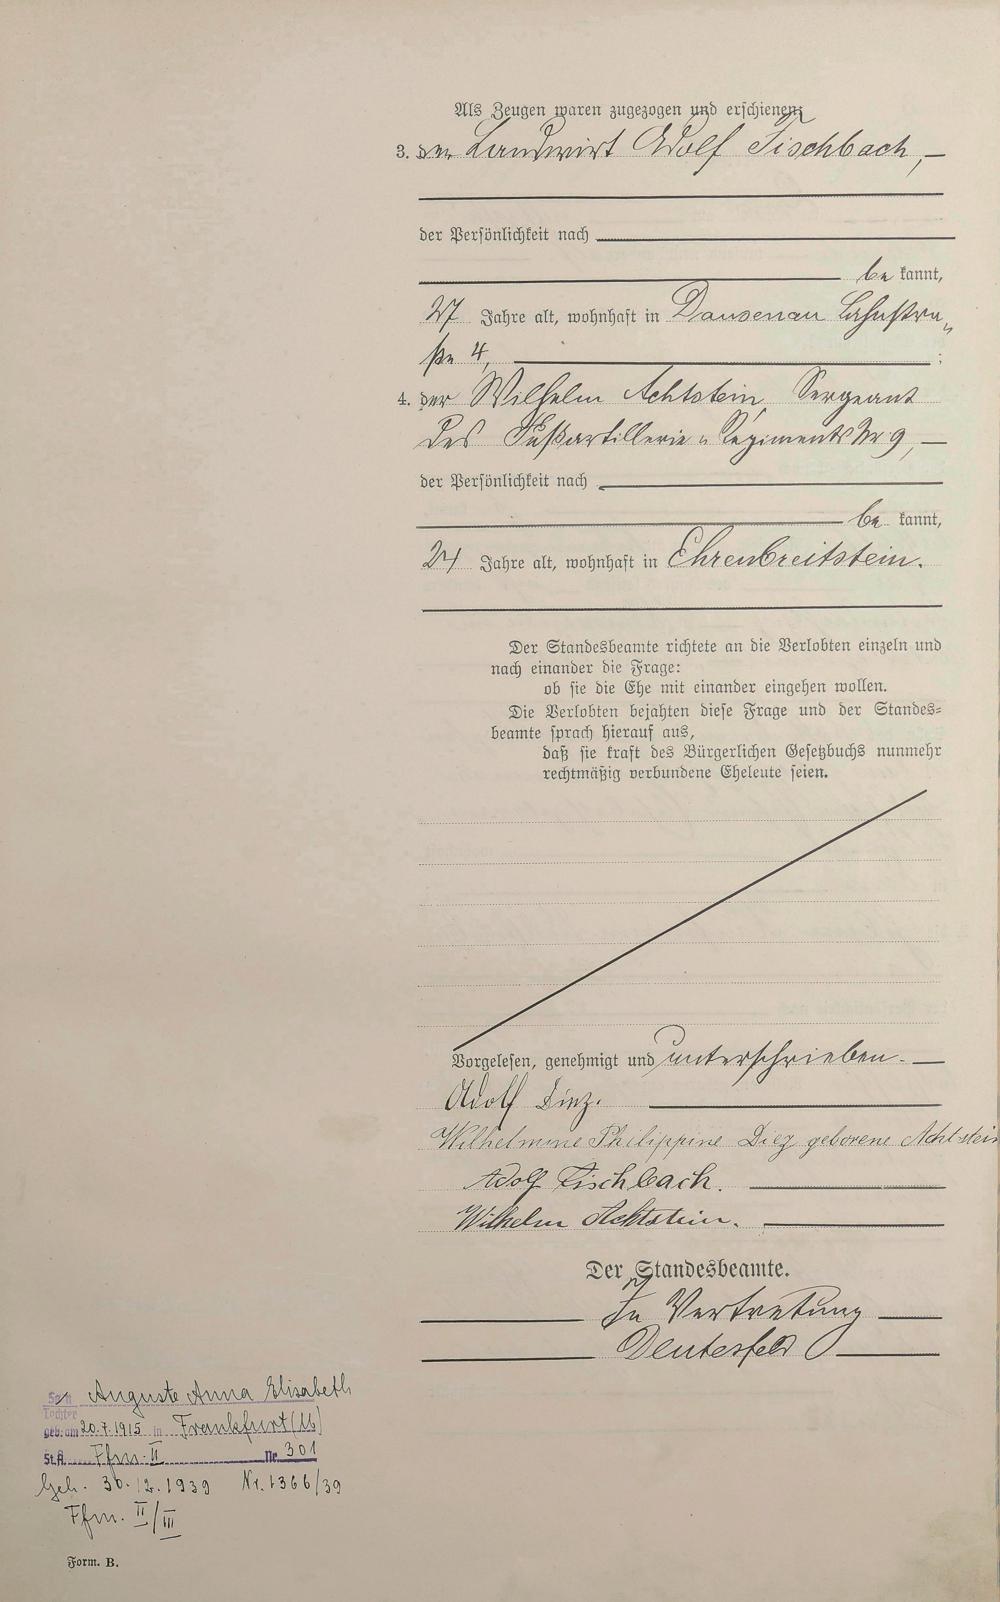 Als Zeugen waren zugezogen und erschienen:
3. der Landwirt Adolf Fischbach,
der Persönlichkeit nach
be kannt,
27 Jahre alt, wohnhaft in Dausenau Lahnstra„
ße 4, ;
4. der Wilhelm Achtstein, Sergeant
des Fußartillerie„Regiments Nr 9,
der Persönlichkeit nach
be kannt,
24 Jahre alt, wohnhaft in Ehrenbreitstein.
Der Standesbeamte richtete an die Verlobten einzeln und
nach einander die Frage:
ob sie die Ehe mit einander eingehen wollen.
Die Verlobten bejahten diese Frage und der Standes=
beamte sprach hierauf aus,
daß sie kraft des Bürgerlichen Gesetzbuchs nunmehr
rechtmäßig verbundene Eheleute seien.
Vorgelesen, genehmigt und unterschrieben.
Adolf Diez.
Wilhelmine Philippine Diez geborene Achtstein
Adolf Fischbach.
Wilhelm Achtstein.
Der Standesbeamte.
In Vertretung
Deutesfeld
Sohn Auguste Anna Elisabeth
Tochter
geb. am 20.7.1915 in Frankfurt (M)
St.A. Ffm. II Nr. 301
Geh. 30.12.1939 Nr. 1366/39
Ffm. II/III
Form. B.